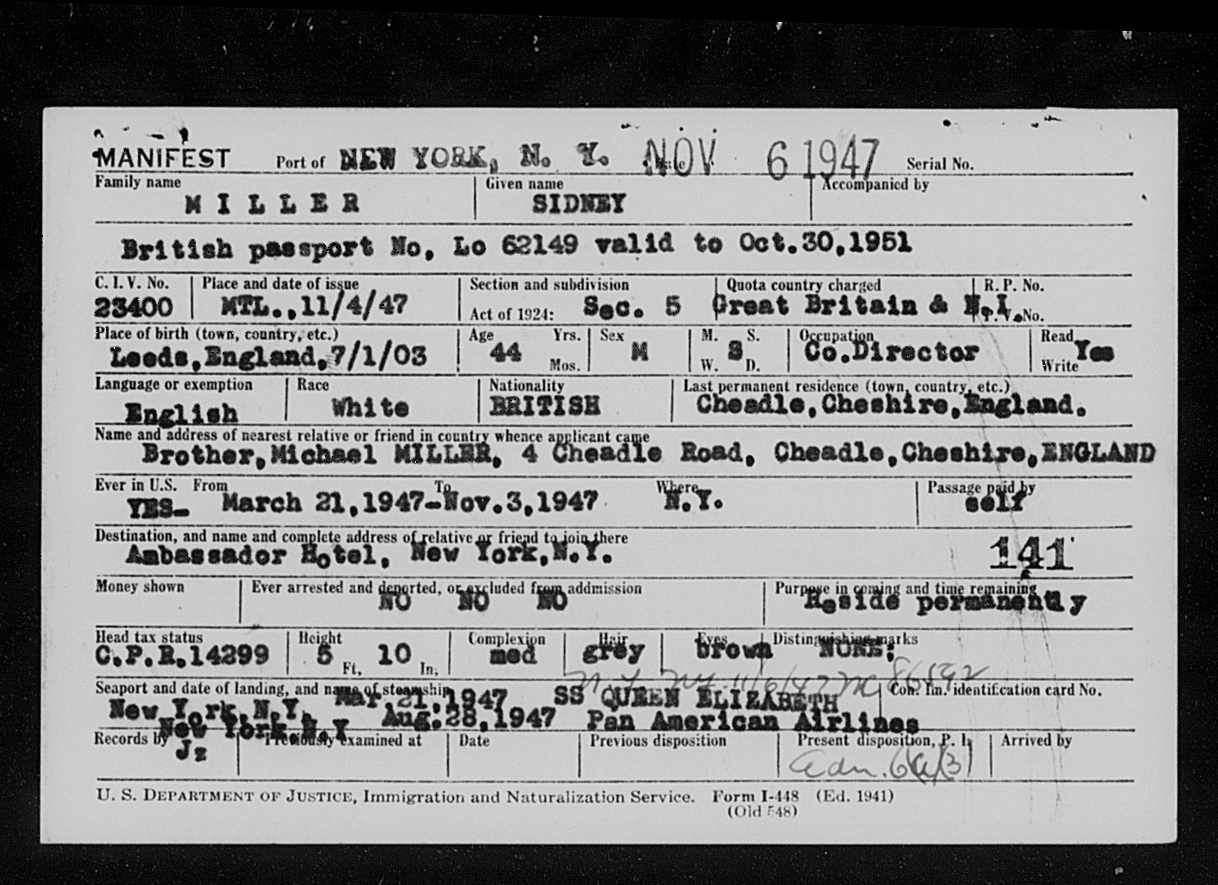 MANIFEST Port of NEW YORK, N. Y. NOV 6 1947 Serial No.
Family name Given name Accompanied by
M I L L E R SIDNEY
British passport No. Lo 62149 valid to Oct.30,1951
C. I. V. No. Place and date of issue Section and subdivision Quota country charged R. P. No.
23400 MTL.,11/4/47 Act of 1924: Sec. 5 Great Britain & N.I. P. V. No.
Place of birth (town, country, etc.) Age Yrs. Sex M. S. Occupation Read Yes
Leeds,England,7/1/03 44 Mos. M W. S D. Co.Director Write
Language or exemption Race Nationality Last permanent residence (town, country, etc.)
English White BRITISH Cheadle,Cheshire,England.
Name and address of nearest relative or friend in country whence applicant came
Brother,Michael MILLER, 4 Cheadle Road, Cheadle,Cheshire,ENGLAND
Ever in U.S. From To Where Passage paid by
YES- March 21,1947-Nov.3,1947 N.Y. self
Destination, and name and complete address of relative or friend to join there
Ambassador Hotel, New York,N.Y. 141
Money shown Ever arrested and deported, or excluded from addmission Purpose in coming and time remaining
NO NO NO Reside permanently
Head tax status Height Complexion Hair Eyes Distinguishing marks
C.P.R.14299 5 Ft. 10 In. med grey brown NONE;
N.Y. 11/6/47 86592
Seaport and date of landing, and name of steamship identification card No.
New York,N.Y. Mar.21,1947 SS QUEEN ELIZABETH
New York,N.Y Aug.28,1947 Pan American Airlines
Records by Previously examined at Date Previous disposition Present disposition, P. I. Arrived by
Jz adm.
U. S. DEPARTMENT OF JUSTICE, Immigration and Naturalization Service. Form I-448 (Ed. 1941)
(Old 548)